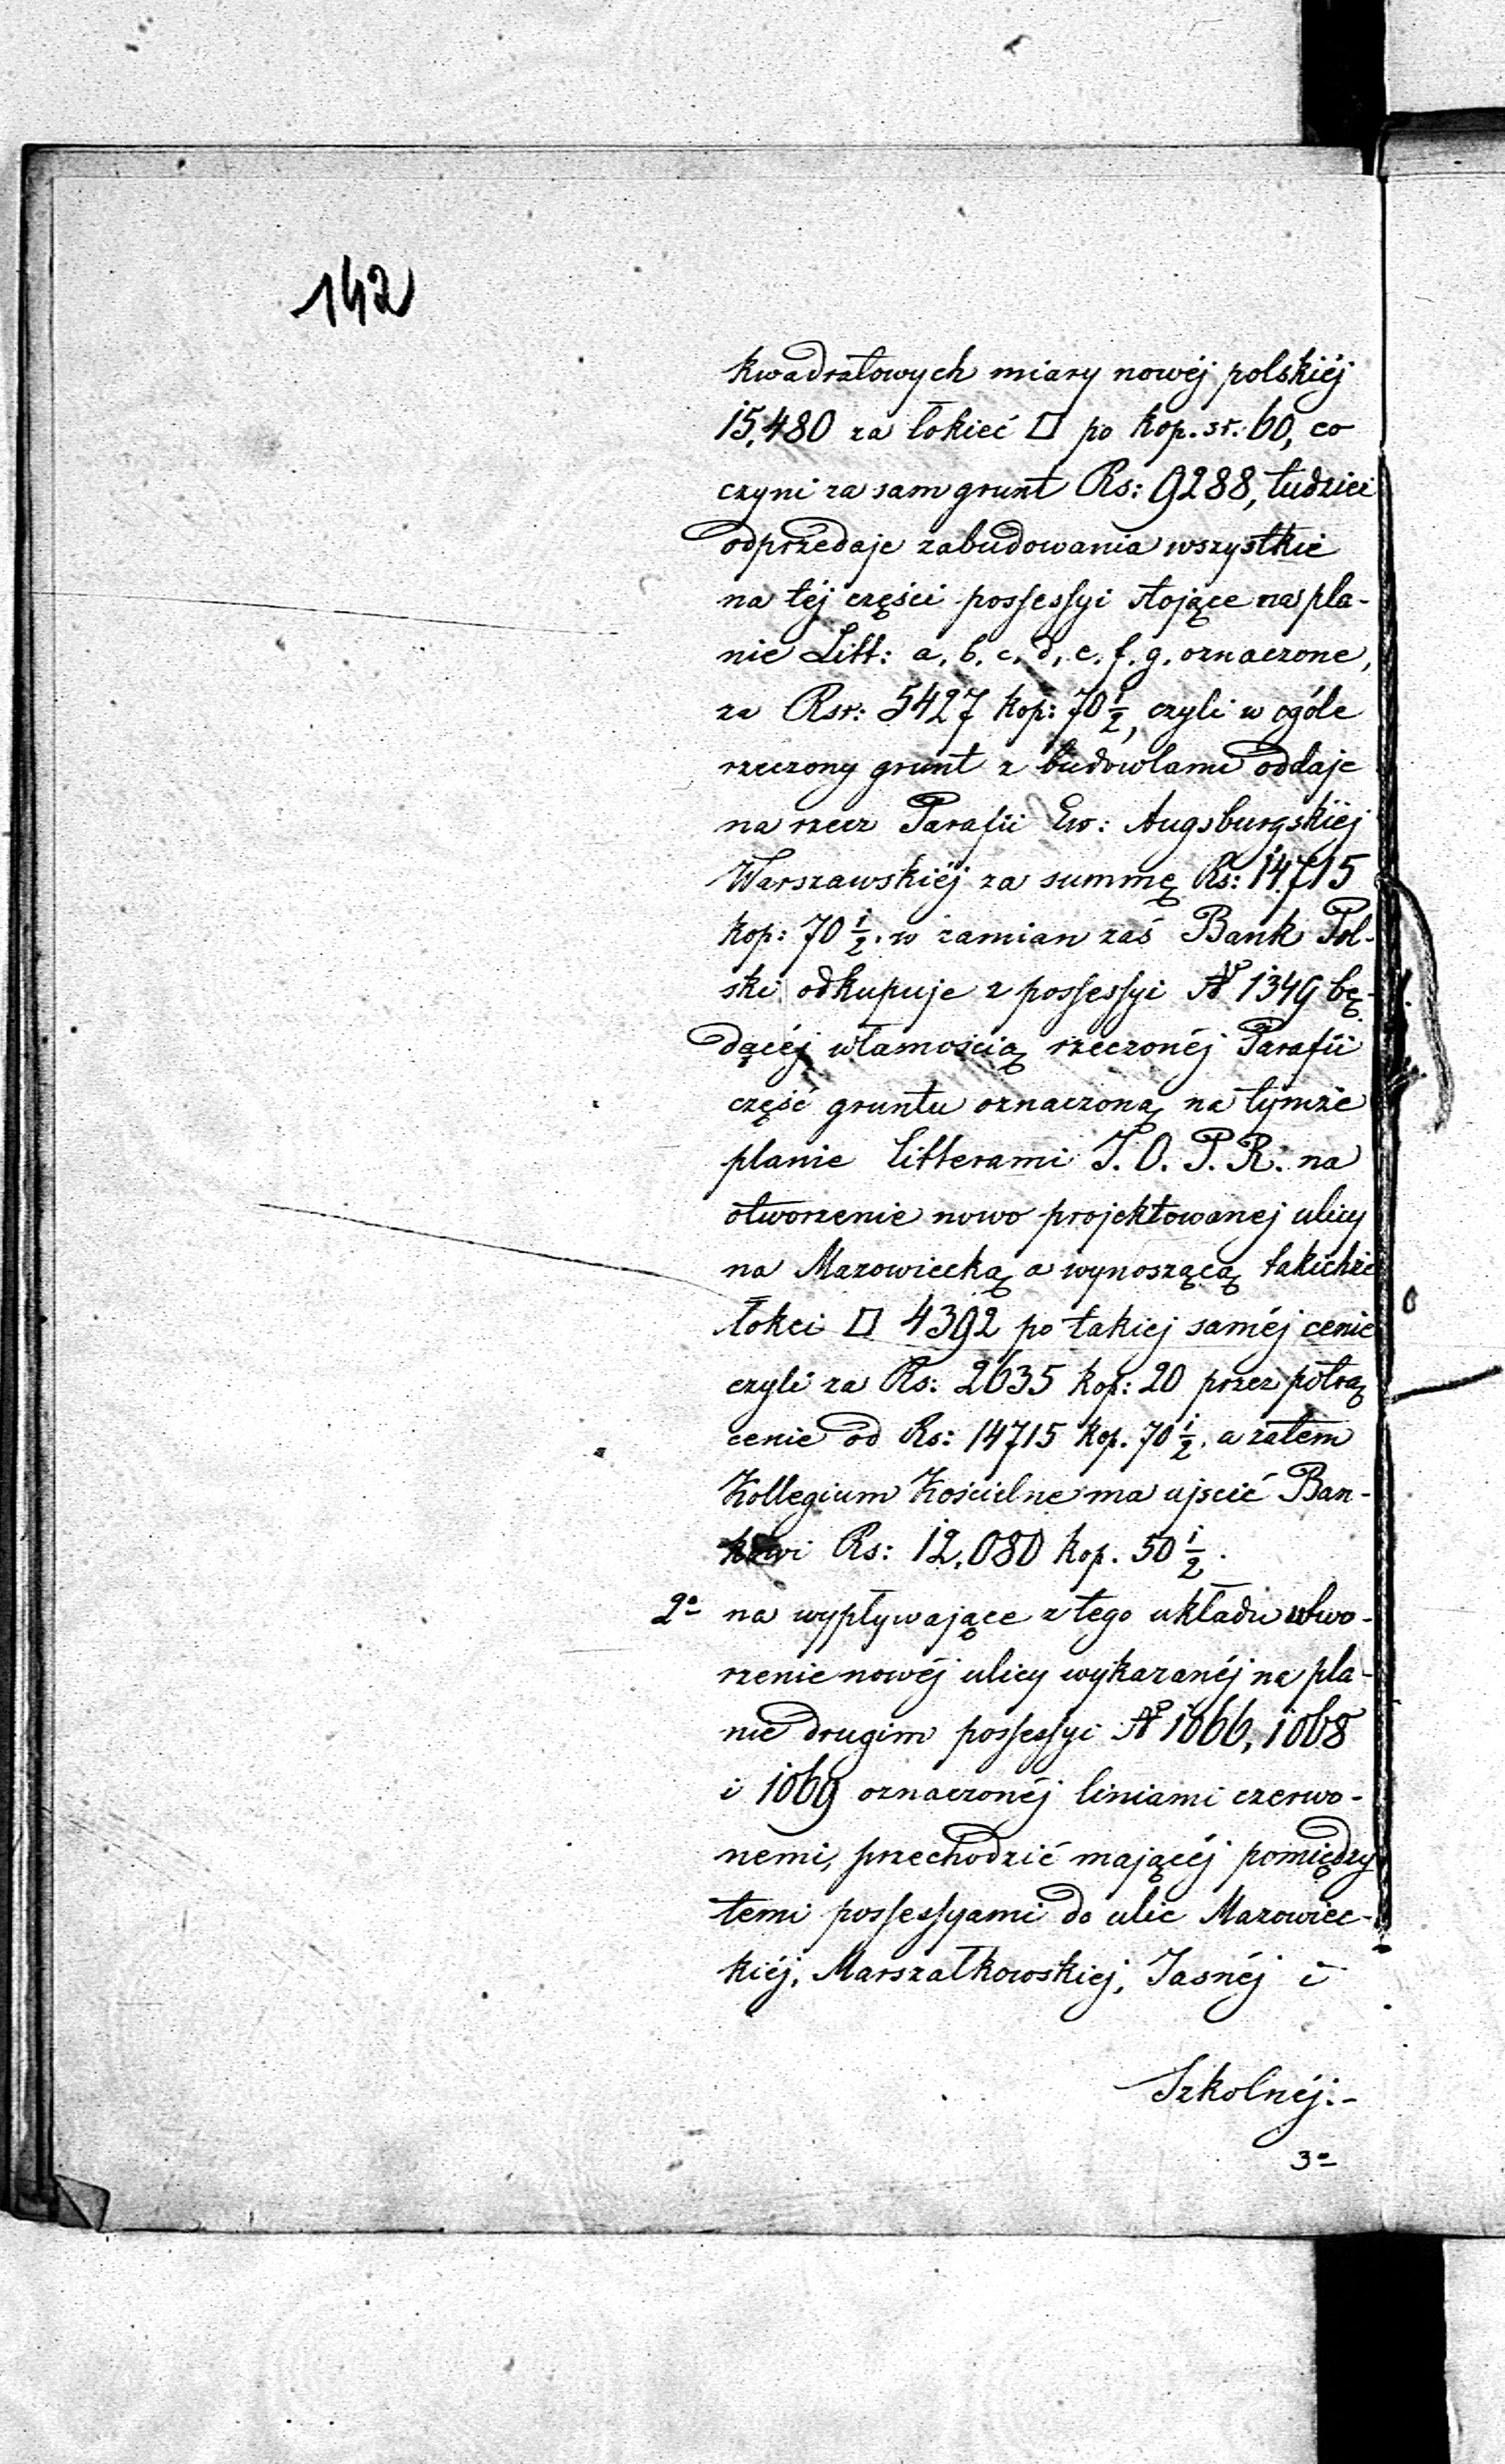 142
kwadratowych miary nowéj polskiéj
15,480 za łokieć □ po kop. sr: 60, co
czyni za sam grunt Rs: 9288, tudzież
odprzedaje zabudowania wszystkie
na téj części possessyi stojące na pla-
nie Litt: a. b. c. d. e. f. g. oznaczone,
za Rsr: 5427 kop: 70 1/2, czyli w ogóle
rzeczony grunt z budowlami oddaje
na rzecz Parafii Ew: Augsburgskiéj
Warszawskiéj za summę Rs: 14715
kop: 70 1/2. w zamian zaś Bank Pol-
ski odkupuje z possessyi № 1349 bę-
dącéj własnością rzeczonéj Parafii
część gruntu oznaczoną na tymże
planie litterami J. O. P. R. na
otworzenie nowo projektowanej ulicy
na Mazowiecką a wynoszącą takichże
łokci □ 4392 po takiej saméj cenie
czyli za Rs: 2635 kop: 20 przez potrą
cenie od Rs: 14715 kop. 70 1/2. a zatem
Kollegium Kościelne ma ujścić Ban-
kowi Rs: 12,080 kop. 50 1/2.
2o na wypływające z tego układu utwo-
rzenie nowéj ulicy wykazanéj na pla-
nie drugim possessyi № 1066, 1068
i 1069 oznaczonéj liniami czerwo-
nemi, przechodzić mającéj pomiędzy
temi possessyami do ulic Mazowiec-
kiéj, Marszałkowskiej, Jasnéj i
Szkolnéj.-
3o